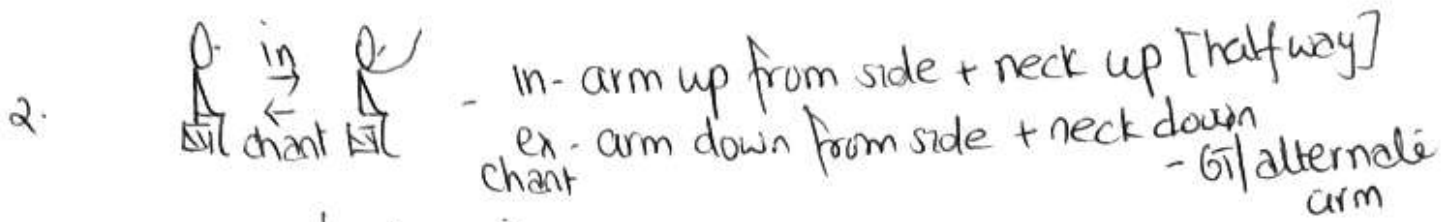 2. in - in- arm up from side + neck up [halfway]
chant ex - arm down from side + neck down
chant - 6T/alternate
arm